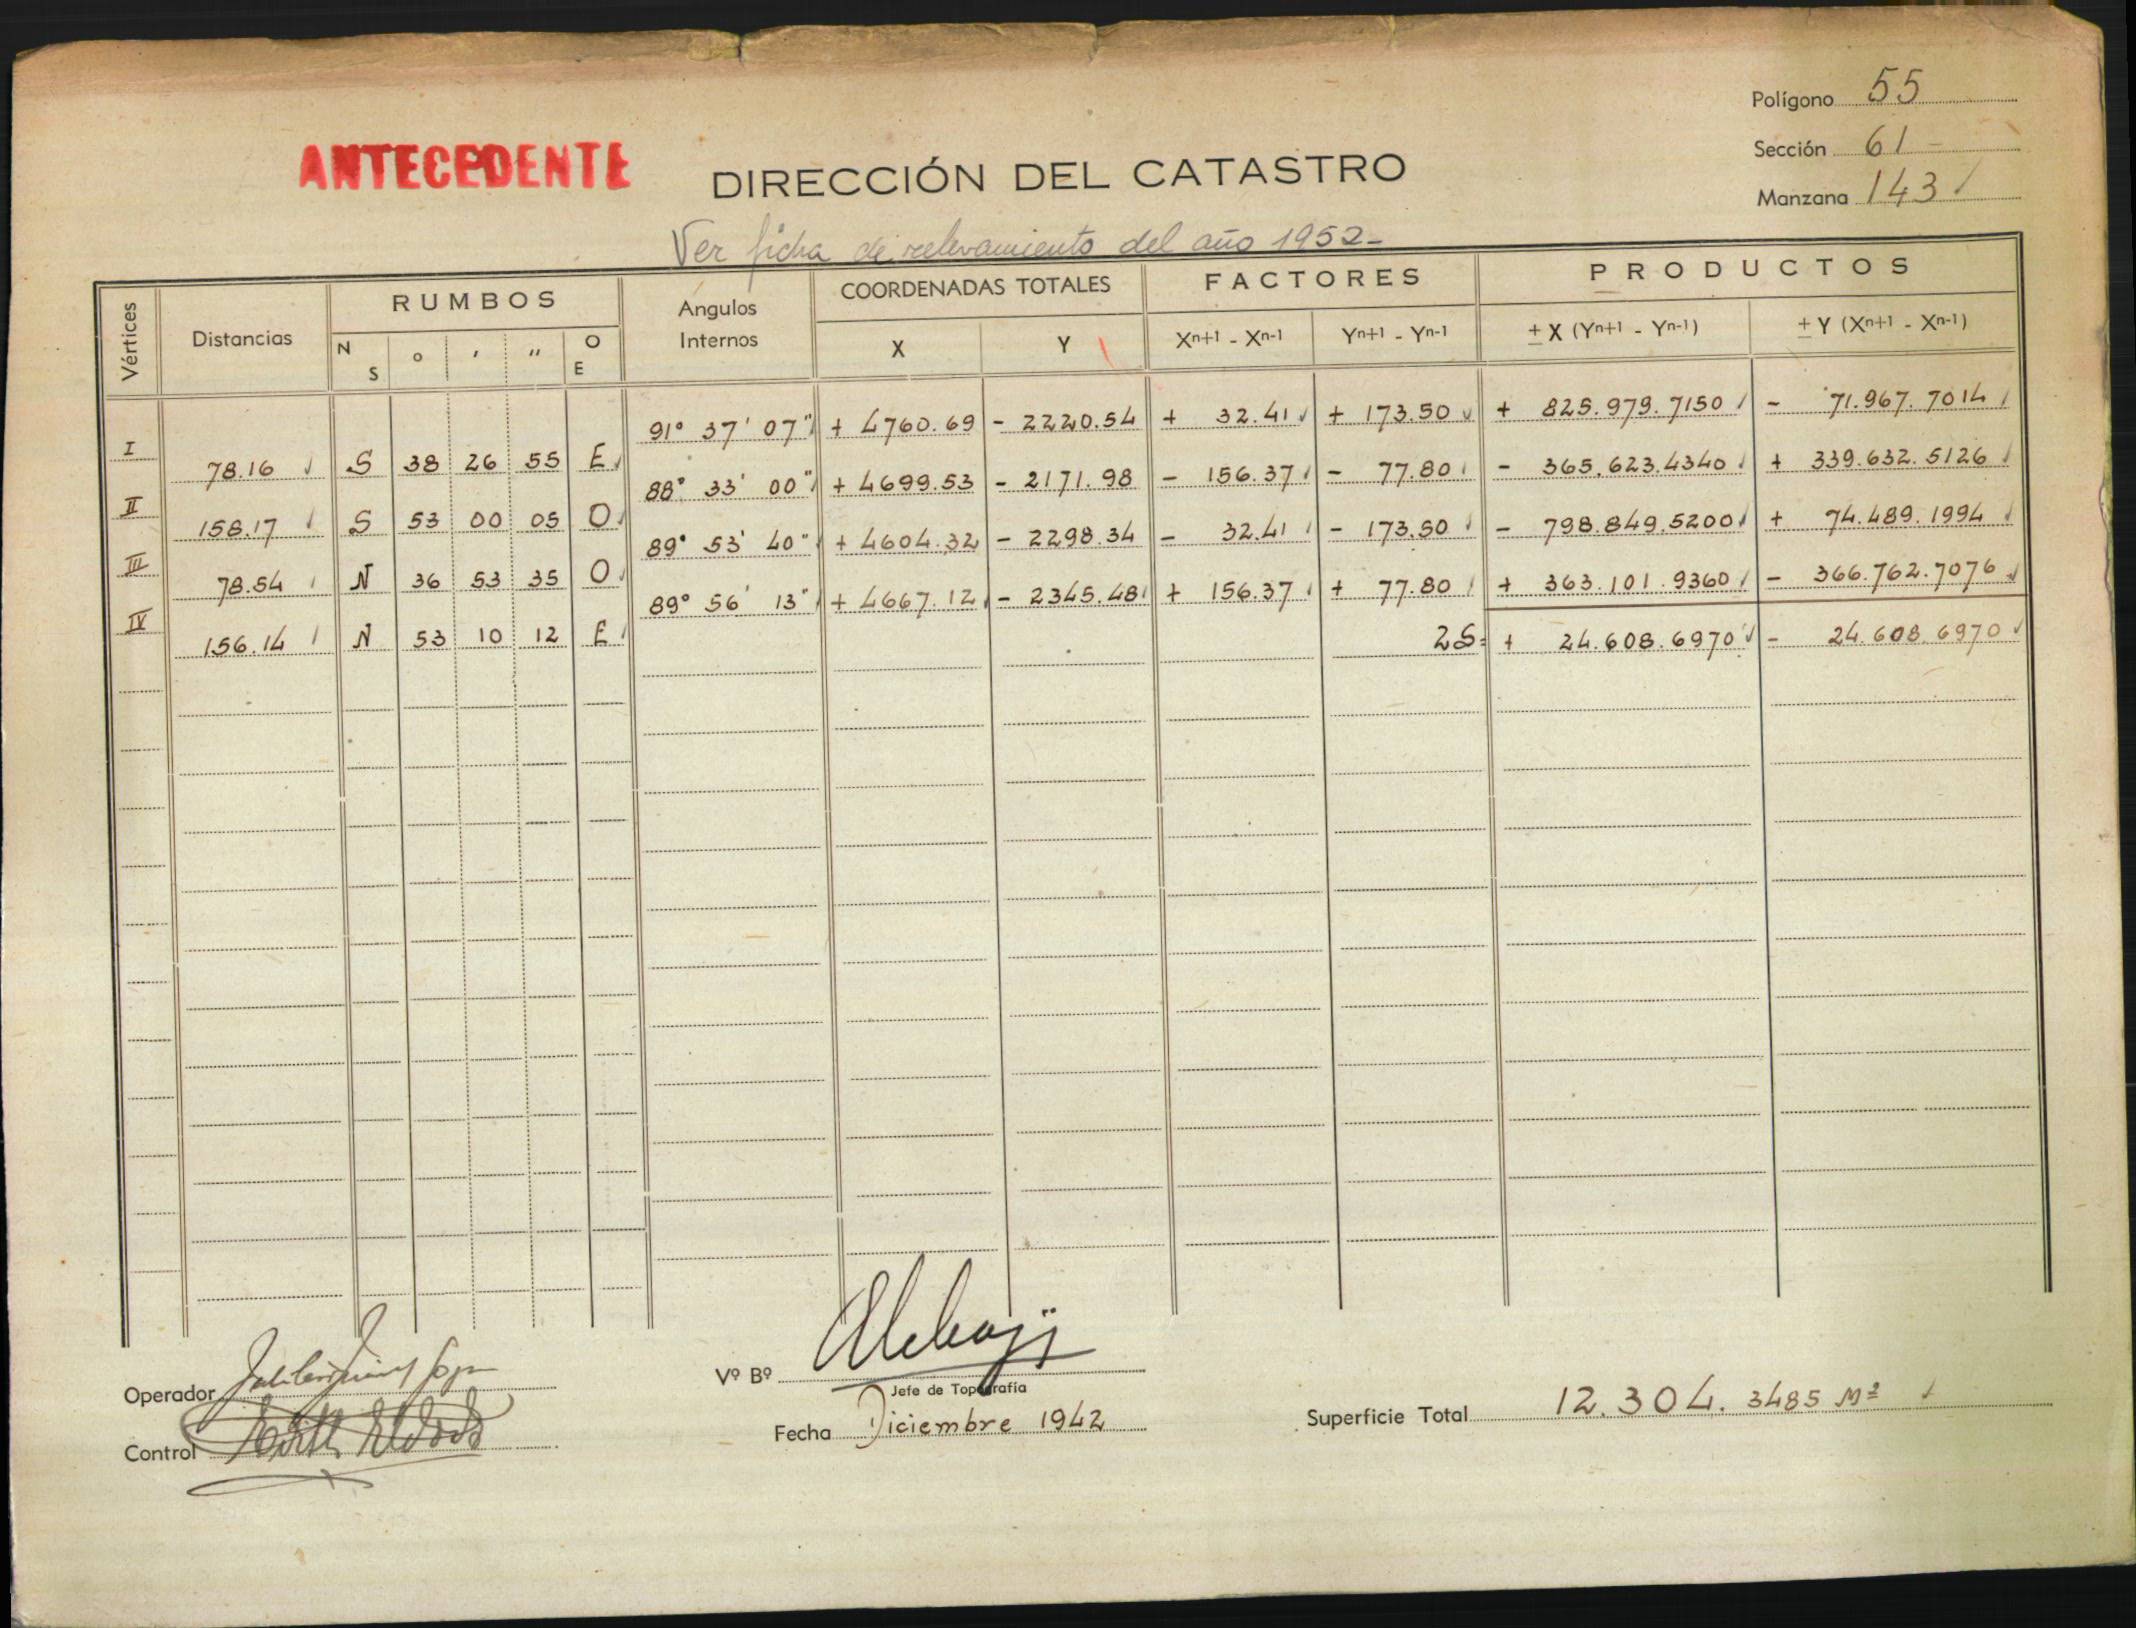 Polígono 55
ANTECEDENTE
DIRECCIÓN DEL CATASTRO
Sección 61 -
Manzana 143
Ver ficha de relevamiento del año 1952-
Vértices Distancias RUMBOS Angulos Internos COORDENADAS TOTALES FACTORES PRODUCTOS
N S ° ' " O E X Y Xn+1 - Xn-1 Yn+1 - Yn-1 ± X (Yn+1 - Yn-1) ± Y (Xn+1 - Xn-1)
I 91° 37' 07" + 4760.69 - 2220.54 + 32.41 + 173.50 + 825.979.7150 - 71.967.7014
78.16 S 38 26 55 E
II 88° 33' 00" + 4699.53 - 2171.98 - 156.37 - 77.80 - 365.623.4340 + 339.632.5126
158.17 S 53 00 05 O
III 89° 53' 40" + 4604.32 - 2298.34 - 32.41 - 173.50 - 798.849.5200 + 74.489.1994
78.54 N 36 53 35 O
IV 89° 56' 13" + 4667.12 - 2345.48 + 156.37 + 77.80 + 363.101.9360 - 366.762.7076
156.14 N 53 10 12 E
2S= + 24.608.6970 - 24.608.6970
Operador
Vº Bº
Jefe de Topografía
Control
Fecha Diciembre 1942
Superficie Total 12.304.3485 M²